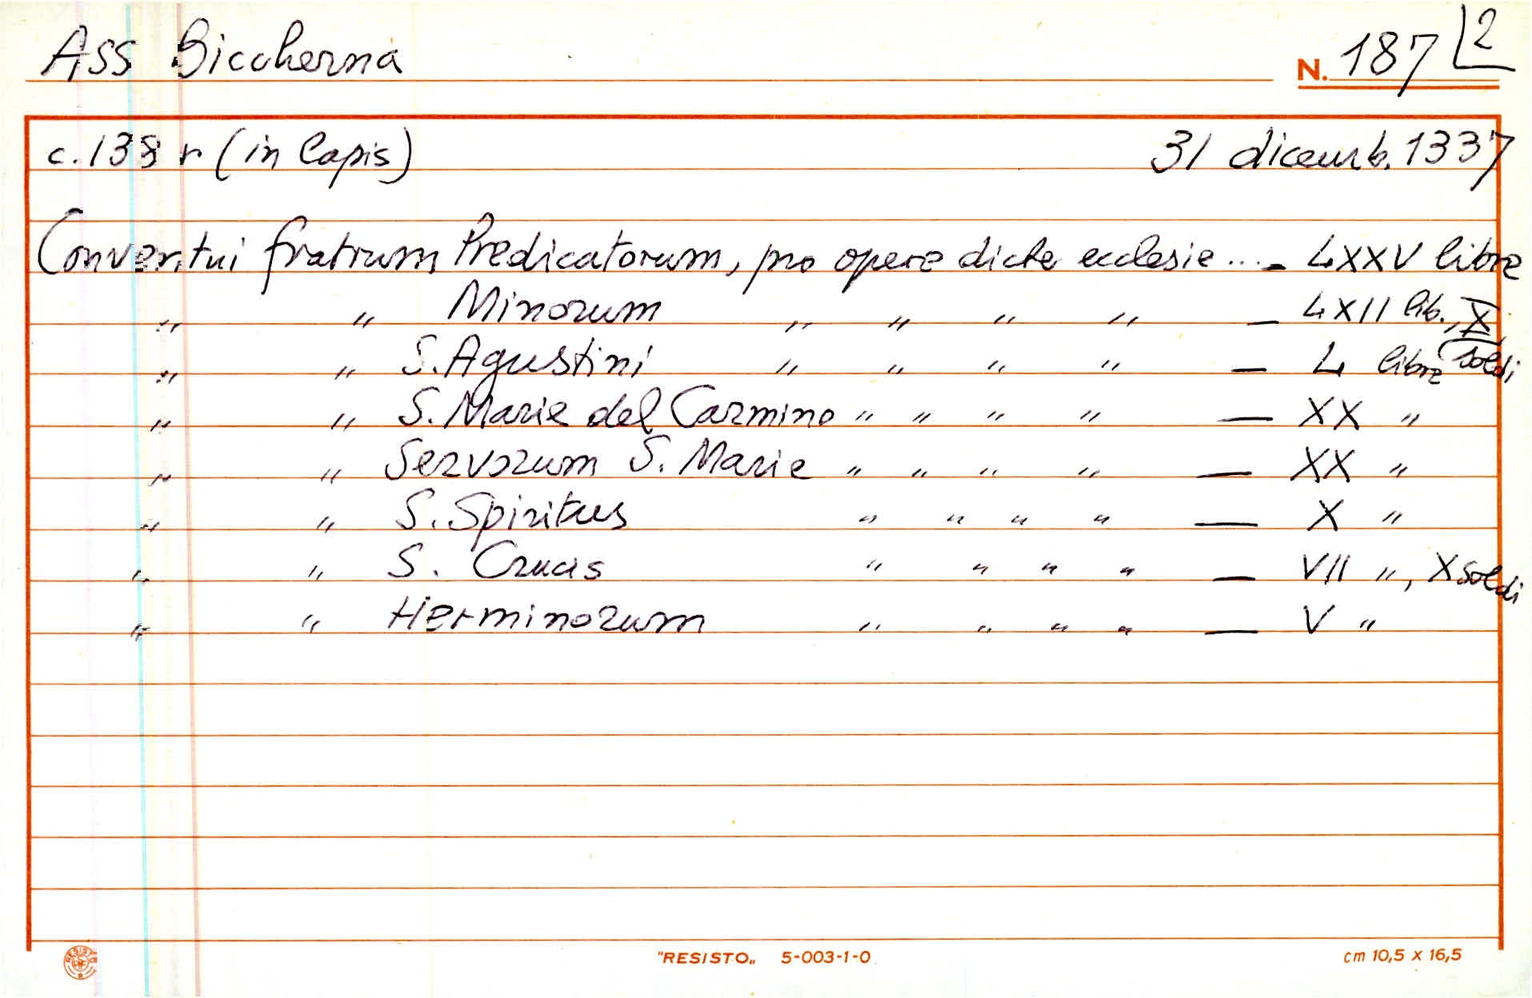 Ass Biccherna N. 187 2
c. 138 r (in Capis) 31 dicemb. 1337
Conventui fratrum Predicatorum, pro opere dicte ecclesie ... - LXXV libre
" " Minorum " " " " - LXII lib., X soldi
" " S. Agustini " " " " - L libre
" " S. Marie del Carmino " " " " - XX "
" " Servorum S. Marie " " " " - XX "
" " S. Spiritus " " " " - X "
" " S. Crucis " " " " - VII ", X soldi
" " Herminorum " " " " - V "
"RESISTO„ 5-003-1-0 cm 10,5 x 16,5